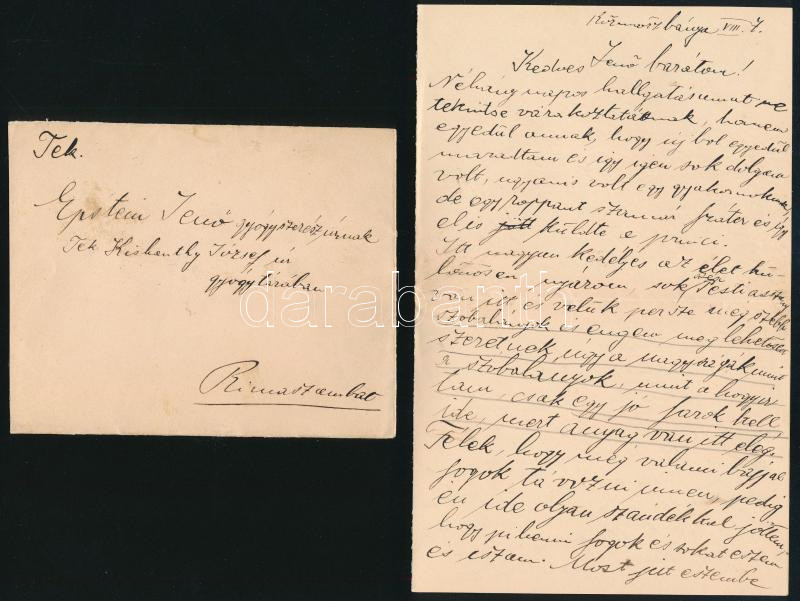 Tek.
Epstein Jenő gyógyszerész úrnak
Tek Kishonthy József úr
gyógytárában
Rimaszombat
Körmöczbánya VIII. 7.
Kedves Jenő barátom!
Néhány napos hallgatásomat ne
tekintse várakoztatásnak, hanem
egyedül annak, hogy újból egyedül
maradtam és így igen sok dolgom
volt, ugyanis volt egy gyakornokunk,
de egy roppant szamár fráter és így
el is jött küldte a princi.
Itt nagyon kedélyes az élet kü-
lönösen nyáron, sok szép Pesti asszony
van itt és velük persze még szebb
szobalányok s engem meglehetősen
szeretnek úgy a nagyságák mint
a szobalányok, mint a hogy ír-
tam, csak egy jó farok kell
ide, mert anyag van itt elég.
Félek, hogy még valami bajjal
fogok távozni innen, pedig
én ide olyan szándékkal jöttem,
hogy pihenni fogok és sokat eszem
és iszom. Most jut eszembe
darabanth